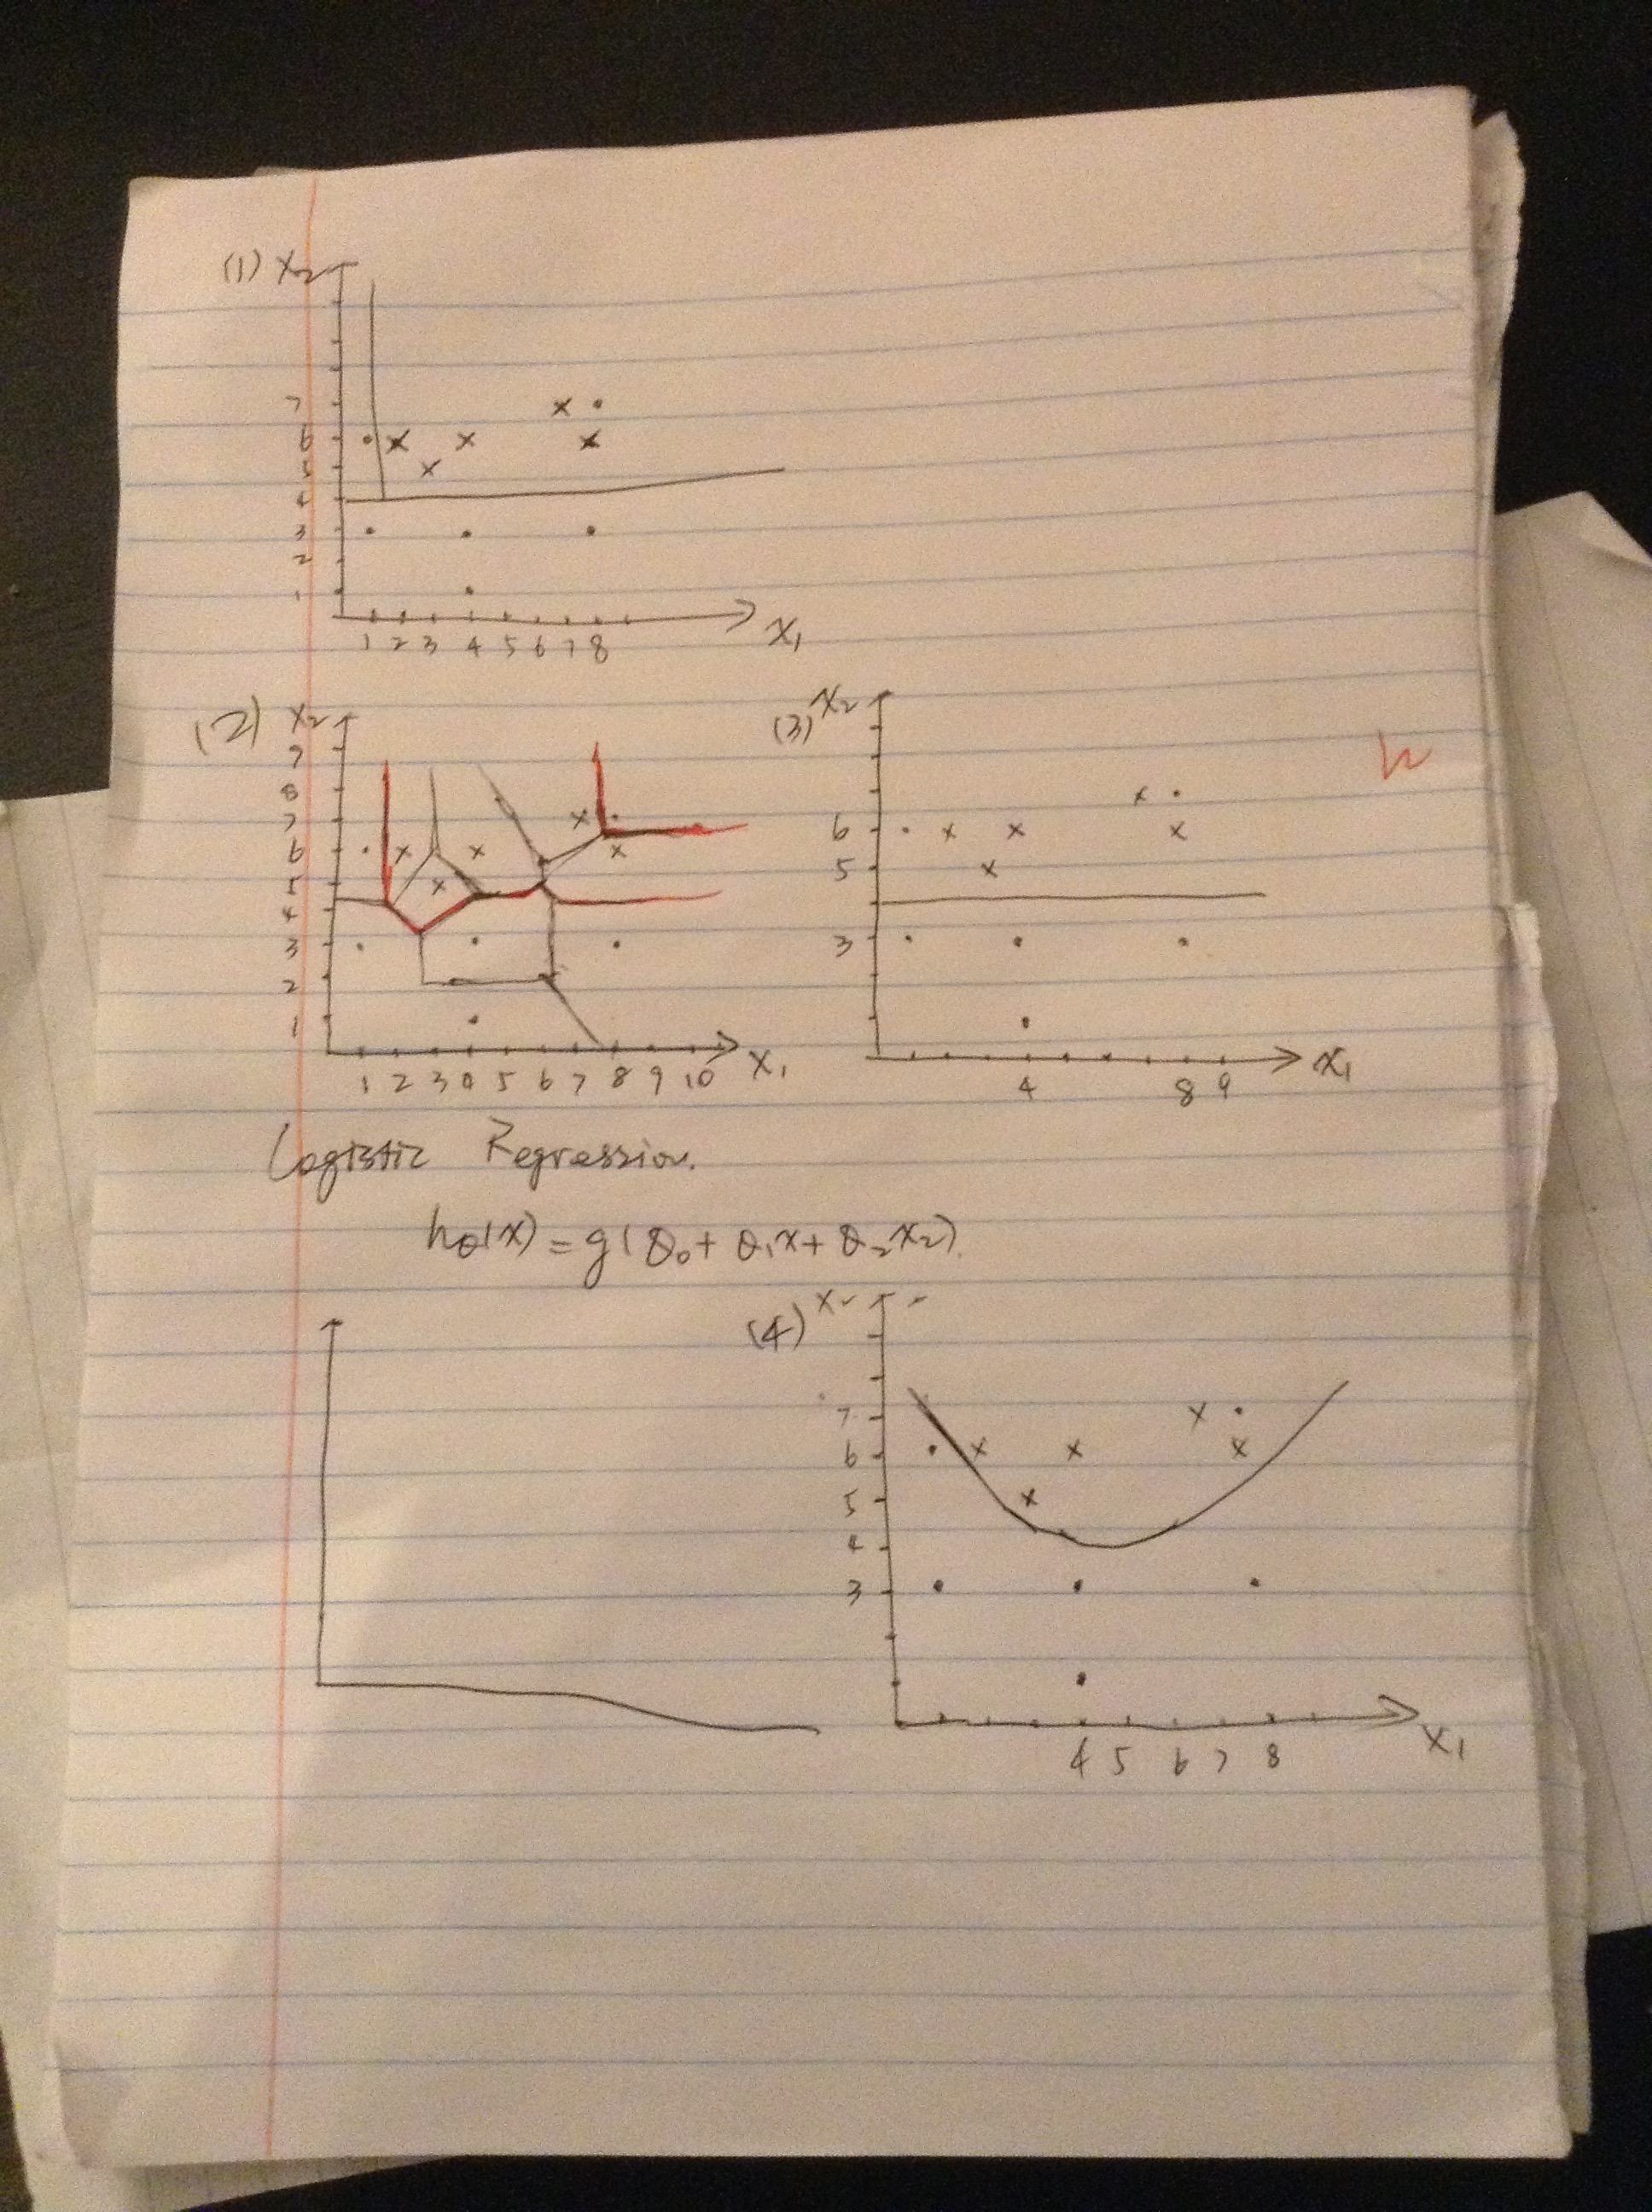 (1) X2
7
6
5
4
3
2
1
1 2 3 4 5 6 7 8
X1
(2) X2
9
8
7
6
5
4
3
2
1
1 2 3 4 5 6 7 8 9 10 X1
(3) X2
6
5
3
4 8 9
X1
Logistic Regression.
hθ(x) = g(θ0 + θ1x + θ2x2).
(4) X2
7
6
5
4
3
4 5 6 7 8
X1